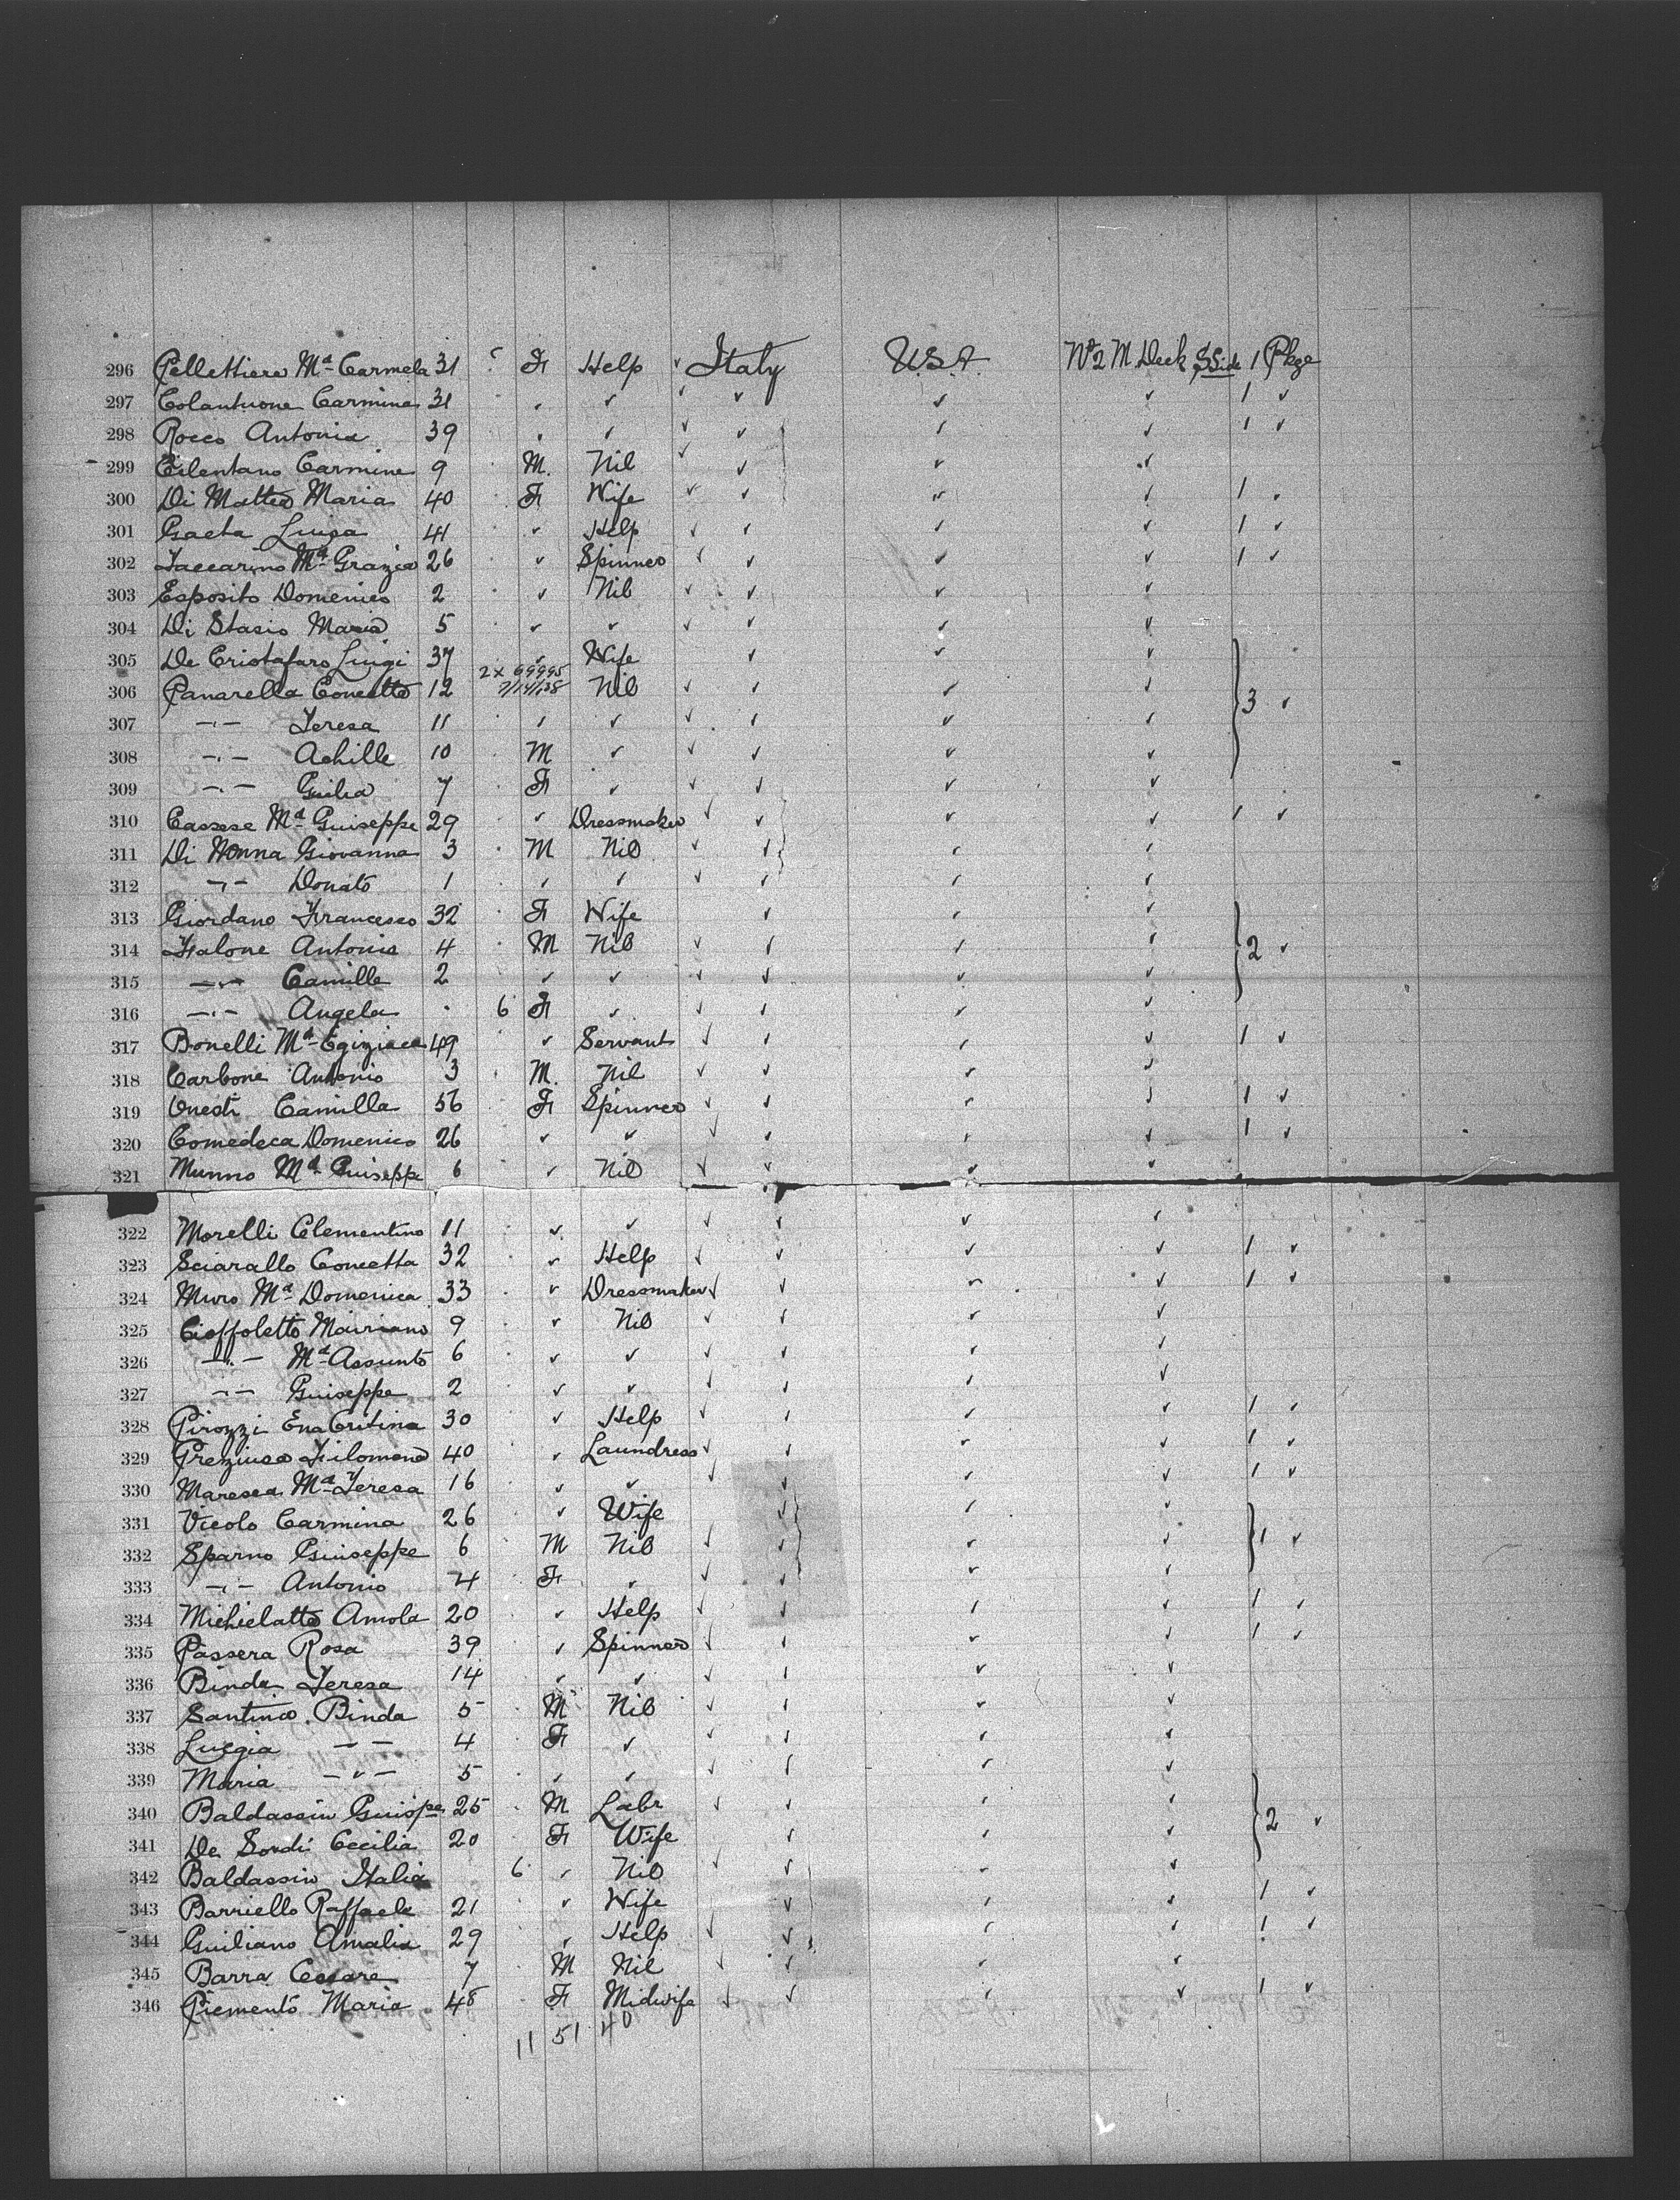 296 Pellettiere Mª Carmela 31 F Help ✓ Italy U.S.A. Nº 2 M Deck S Side 1 Pkge
297 Colantuone Carmina 31 ✓ ✓ ✓ ✓ ✓ ✓ 1 ✓
298 Rocco Antonia 39 ✓ ✓ ✓ ✓ ✓ ✓ 1 ✓
299 Cilentano Carmine 9 M. Nil ✓ ✓ ✓ ✓
300 Di Matteo Maria 40 F Wife ✓ ✓ ✓ ✓ 1 ✓
301 Gaeta Luisa 41 ✓ Help ✓ ✓ ✓ ✓ 1 ✓
302 Iaccarino Mª Grazia 26 ✓ Spinner ✓ ✓ ✓ ✓ 1 ✓
303 Esposito Domenico 2 ✓ Nil ✓ ✓ ✓ ✓
304 Di Stasio Maria 5 ✓ ✓ ✓ ✓ ✓ ✓
305 De Cristofaro Luigi 37 ✓ Wife ✓ ✓ ✓
2 X 69995
306 Panarella Concetta 12 7/14/38 Nil ✓ ✓ ✓ ✓ 3 ✓
307 -"- Teresa 11 ✓ ✓ ✓ ✓ ✓ ✓
308 -"- Achille 10 M ✓ ✓ ✓ ✓ ✓
309 -"- Giulia 7 F ✓ ✓ ✓ ✓ ✓
310 Cassese Mª Guiseppe 29 ✓ Dressmaker ✓ ✓ ✓ ✓ 1 ✓
311 Di Nonna Giovanna 3 M Nil ✓ ✓ ✓ ✓
312 -"- Donato 1 ✓ ✓ ✓ ✓ ✓ ✓
313 Giordano Francesco 32 F Wife ✓ ✓ ✓
314 Falone Antonio 4 M Nil ✓ ✓ ✓ ✓ 2 ✓
315 -"- Camille 2 ✓ ✓ ✓ ✓ ✓ ✓
316 -"- Angela 6 F ✓ ✓ ✓ ✓ ✓
317 Bonelli Mª Egiziaca 49 ✓ Servant ✓ ✓ ✓ ✓ 1 ✓
318 Carbone Antonio 3 M. Nil ✓ ✓ ✓ ✓
319 Onesti Camilla 56 F Spinner ✓ ✓ ✓ ✓ 1 ✓
320 Comedeca Domenico 26 ✓ ✓ ✓ ✓ ✓ ✓ 1 ✓
321 Munno Mª Guiseppe 6 ✓ Nil ✓ ✓ ✓ ✓
322 Morelli Clementino 11 ✓ ✓ ✓ ✓ ✓ ✓
323 Sciarallo Concetta 32 ✓ Help ✓ ✓ ✓ ✓ 1 ✓
324 Muro Mª Domenica 33 ✓ Dressmaker ✓ ✓ ✓ ✓ 1 ✓
325 Cioffoletto Mairiano 9 ✓ Nil ✓ ✓ ✓ ✓
326 -"- Mª Assunto 6 ✓ ✓ ✓ ✓ ✓ ✓
327 -"- Guiseppe 2 ✓ ✓ ✓ ✓ ✓ ✓
328 Pirozzi Ena Critina 30 ✓ Help ✓ ✓ ✓ ✓ 1 ✓
329 Preziusa Filomena 40 ✓ Laundress ✓ ✓ ✓ ✓ 1 ✓
330 Maresca Mª Teresa 16 ✓ ✓ ✓ ✓ ✓ ✓ 1 ✓
331 Vicolo Carmina 26 ✓ Wife ✓ ✓ ✓
332 Sparno Guiseppe 6 M Nil ✓ ✓ ✓ ✓ 1 ✓
333 -"- Antonio 4 F ✓ ✓ ✓ ✓ ✓
334 Michielatto Amola 20 ✓ Help ✓ ✓ ✓ ✓ 1 ✓
335 Passera Rosa 39 ✓ Spinner ✓ ✓ ✓ ✓ 1 ✓
336 Binda Teresa 14 ✓ ✓ ✓ ✓ ✓ ✓
337 Santino Binda 5 M Nil ✓ ✓ ✓ ✓
338 Luigia -"- 4 F ✓ ✓ ✓ ✓ ✓
339 Maria -"- 5 ✓ ✓ ✓ ✓ ✓ ✓
340 Baldassin Guispe 25 M Labr ✓ ✓ ✓ ✓ 2 ✓
341 De Sordi Cecilia 20 F Wife ✓ ✓ ✓
342 Baldassin Italia 6 ✓ Nil ✓ ✓ ✓ ✓
343 Barriello Raffaele 21 ✓ Wife ✓ ✓ ✓ 1 ✓
344 Guiliano Amalia 29 ✓ Help ✓ ✓ ✓ ✓ 1 ✓
345 Barra Cesare 7 M Nil ✓ ✓ ✓ ✓
346 Piemento Maria 48 F Midwife ✓ ✓ ✓ ✓ 1 ✓
11 51 40